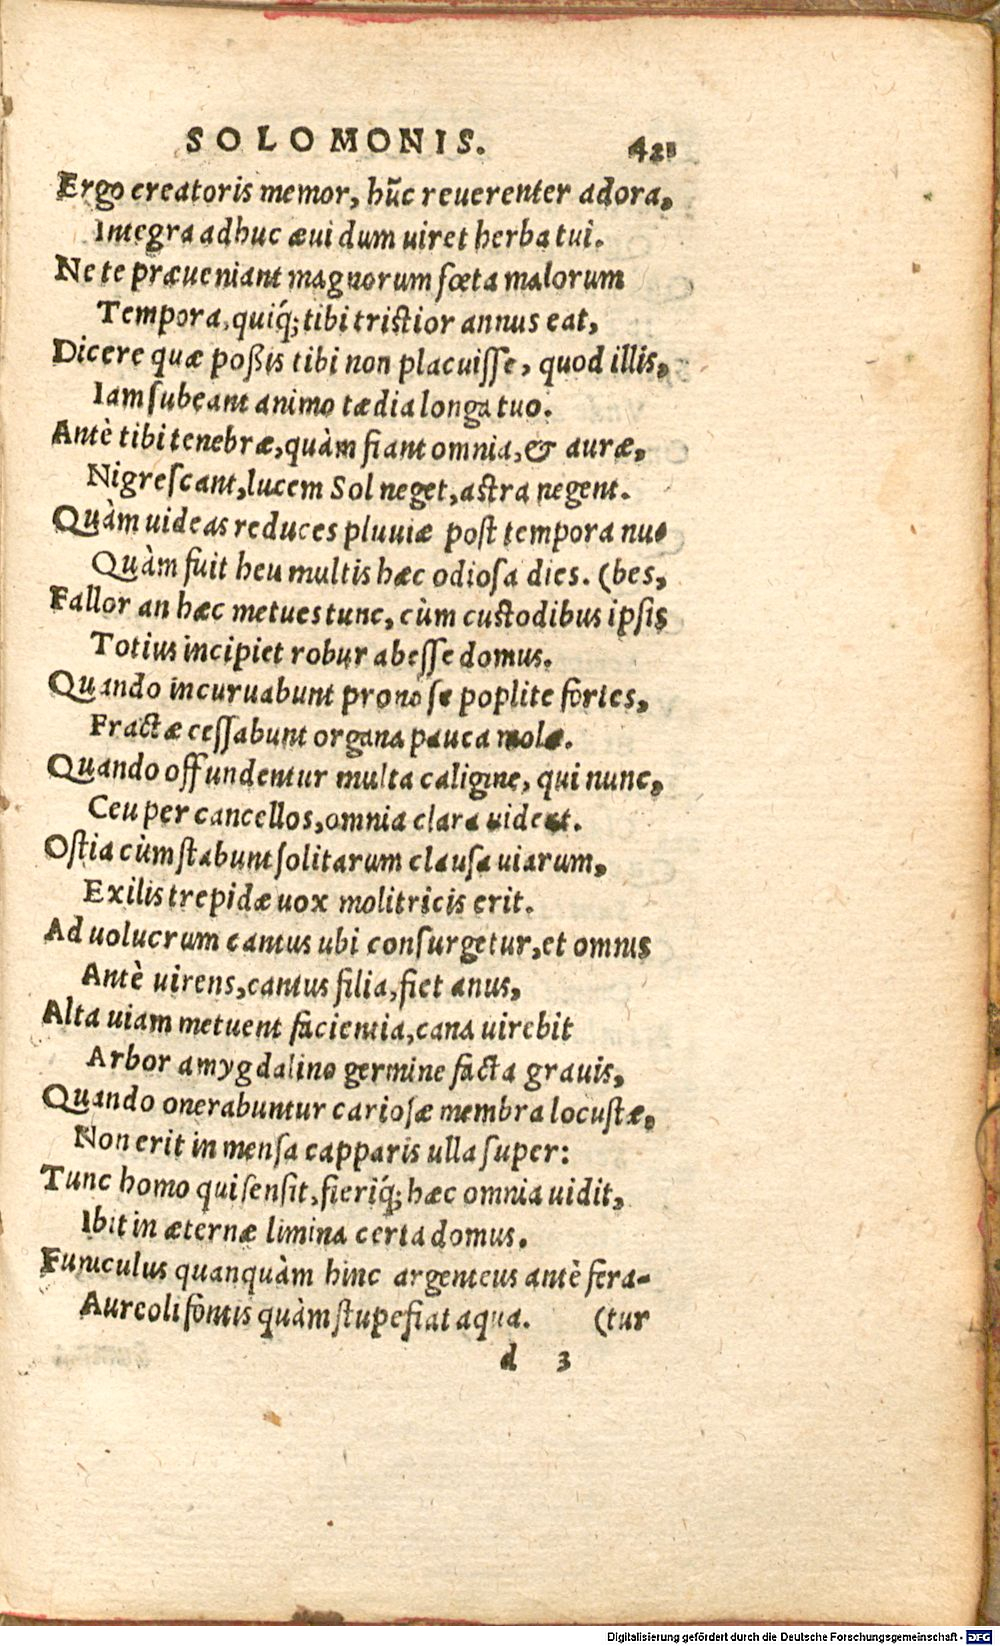 SOLOMONIS. 421
Ergo creatoris memor, hũc reuerenter adora,
Integra adhuc æui dum uiret herba tui.
Ne te præueniant magnorum fœta malorum
Tempora, quiq́; tibi tristior annus eat,
Dicere quæ poßis tibi non placuisse, quod illis,
Iam subeant animo tædia longa tuo.
Antè tibi tenebræ, quàm fiant omnia, & auræ,
Nigrescant, lucem Sol neget, astra negent.
Quàm uideas reduces pluuiæ post tempora nu-
Quàm fuit heu multis hæc odiosa dies. (bes,
Fallor an hæc metues tunc, cùm custodibus ipsis
Totius incipiet robur abesse domus.
Quando incuruabunt prono se poplite fortes,
Fractæ cessabunt organa pauca molæ.
Quando offundentur multa caligine, qui nunc,
Ceu per cancellos, omnia clara uident.
Ostia cùm stabunt solitarum clausa uiarum,
Exilis trepidæ uox molitricis erit.
Ad uolucrum cantus ubi consurgetur, et omnis
Antè uirens, cantus filia, fiet anus,
Alta uiam metuent facientia, cana uirebit
Arbor amygdalino germine facta grauis,
Quando onerabuntur cariosæ membra locustæ,
Non erit in mensa capparis ulla super:
Tunc homo qui sensit, fieriq́; hæc omnia uidit,
Ibit in æternæ limina certa domus.
Funiculus quanquàm hinc argenteus antè fera-
Aureoli fontis quàm stupefiat aqua. (tur
d 3
Digitalisierung gefördert durch die Deutsche Forschungsgemeinschaft - DFG